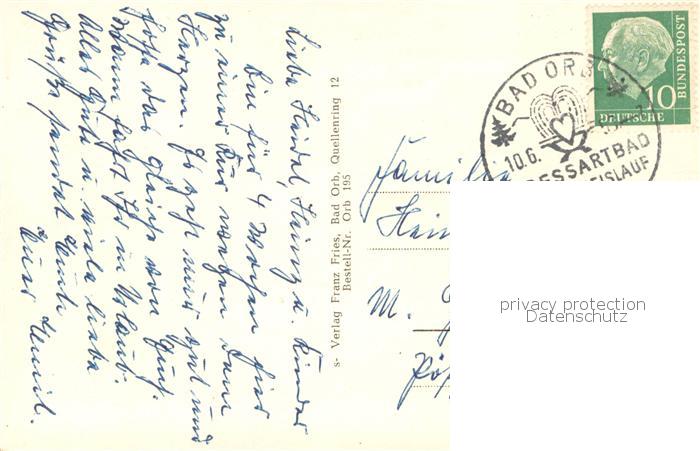 Liebe Heidel, Heinz u. Kinder
Bin für 4 Wochen hier
zu einer Kur wegen dem
Herzen. Es geht mir gut und
hoffe das gleiche von Euch.
Wann fahrt Ihr in Urlaub.
Alles Gute u. viele liebe
Grüße sendet Euch
Euer Emil.
s- Verlag Franz Fries, Bad Orb, Quellenring 12
Bestell-Nr. Orb 195
BAD ORB
10.6.
SSARTBAD
EISLAUF
10
DEUTSCHE
BUNDESPOST
Familie
Hein
M.
privacy protection
Datenschutz